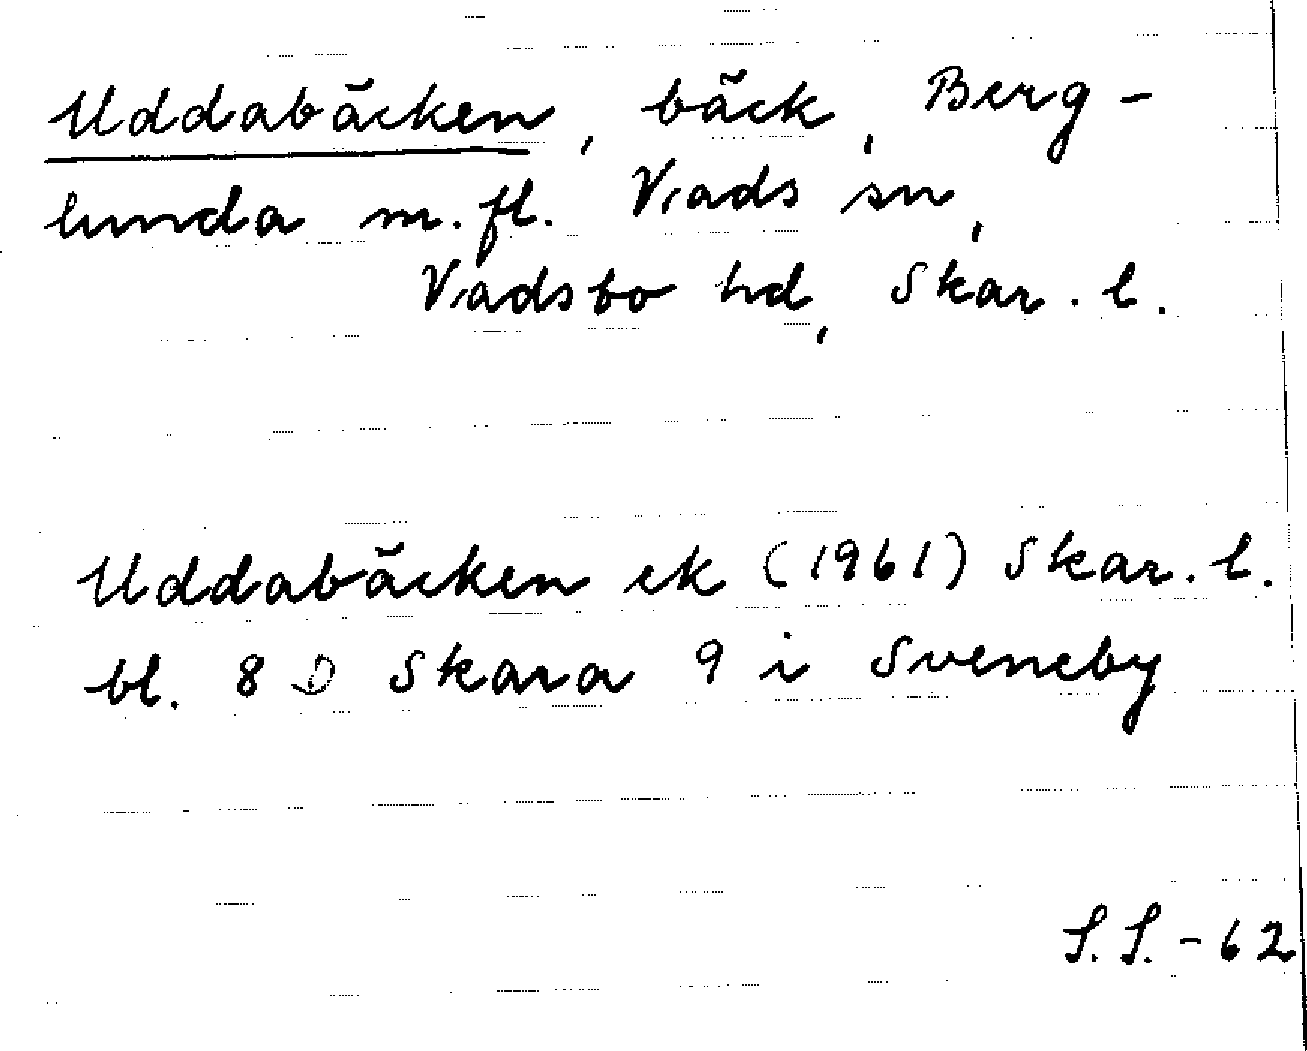 Uddabäcken, bäck, Berg-
lunda m.fl. Vads sn,
Vadsbo hd, Skar. l.
Uddabäcken ek (1961) Skar. l.
bl. 8 D Skara 9 i Sveneby
S.S.-62